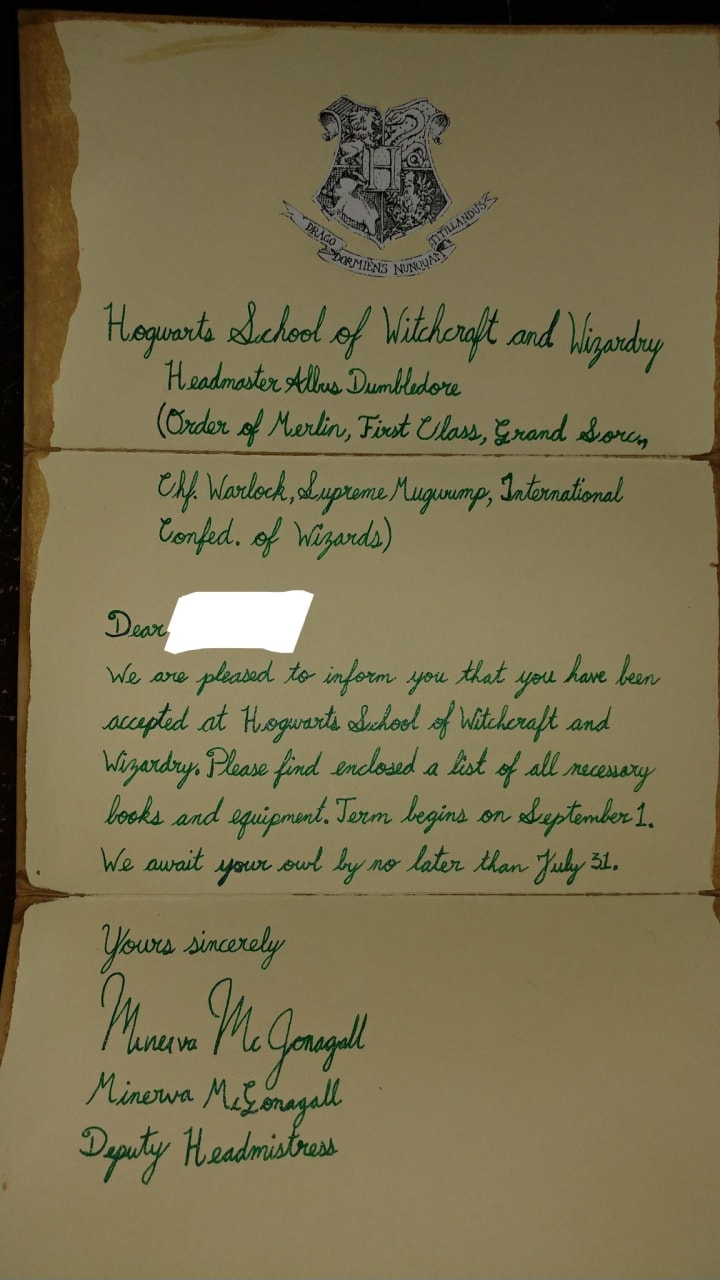 DRACO
DORMIENS NUNQUAM
TITILLANDUS
Hogwarts School of Witchcraft and Wizardry
Headmaster Albus Dumbledore
(Order of Merlin, First Class, Grand Sorc.,
Chf. Warlock, Supreme Mugwump, International
Confed. of Wizards)
Dear
We are pleased to inform you that you have been
accepted at Hogwarts School of Witchcraft and
Wizardry. Please find enclosed a list of all necessary
books and equipment. Term begins on September 1.
We await your owl by no later than July 31.
Yours sincerely
Minerva McGonagall
Minerva McGonagall
Deputy Headmistress